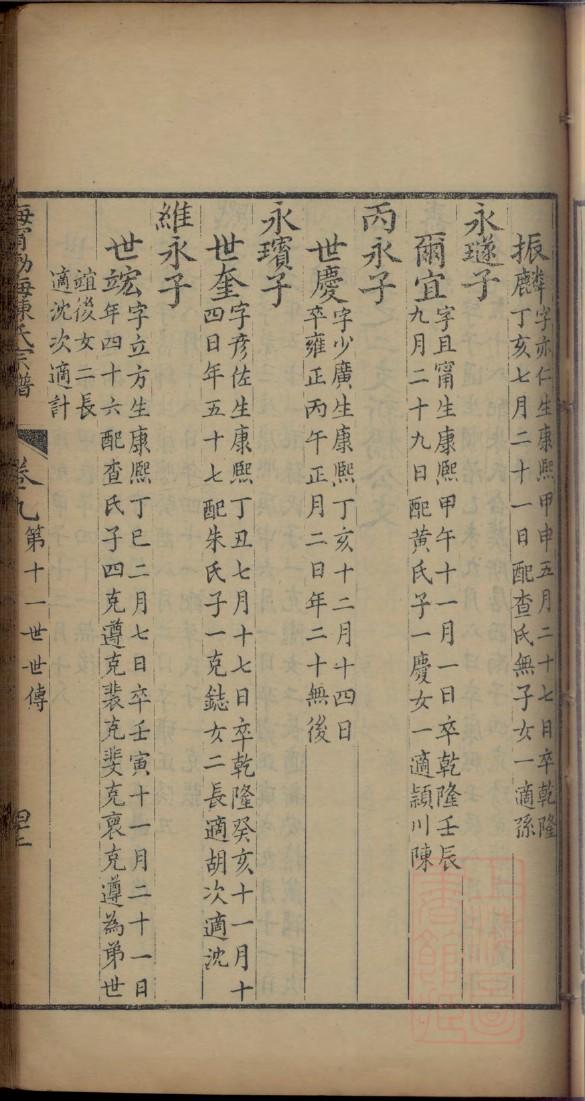 振麟字亦仁生康熙甲申五月二十七日卒乾隆
丁亥七月二十一日配查氏無子女一適孫
永璲子
爾宜字且甯生康熙甲午十一月一日卒乾隆壬辰
九月二十九日配黃氏子一慶女一適潁川陳
丙永子
世慶字少廣生康熙丁亥十二月十四日
卒雍正丙午正月二日年二十無後
永璸子
世奎字彦佐生康熙丁丑七月十七日卒乾隆癸亥十一月十
四日年五十七配朱氏子一克鋕女二長適胡次適沈
維永子
世竤字立方生康熙丁巳二月七日卒壬寅十一月二十一日
年四十六配查氏子四克遵克裴克斐克裒克遵為弟世
誼後女二長
適沈次適計
海寧渤海陳氏宗譜
卷九
第十一世世傳